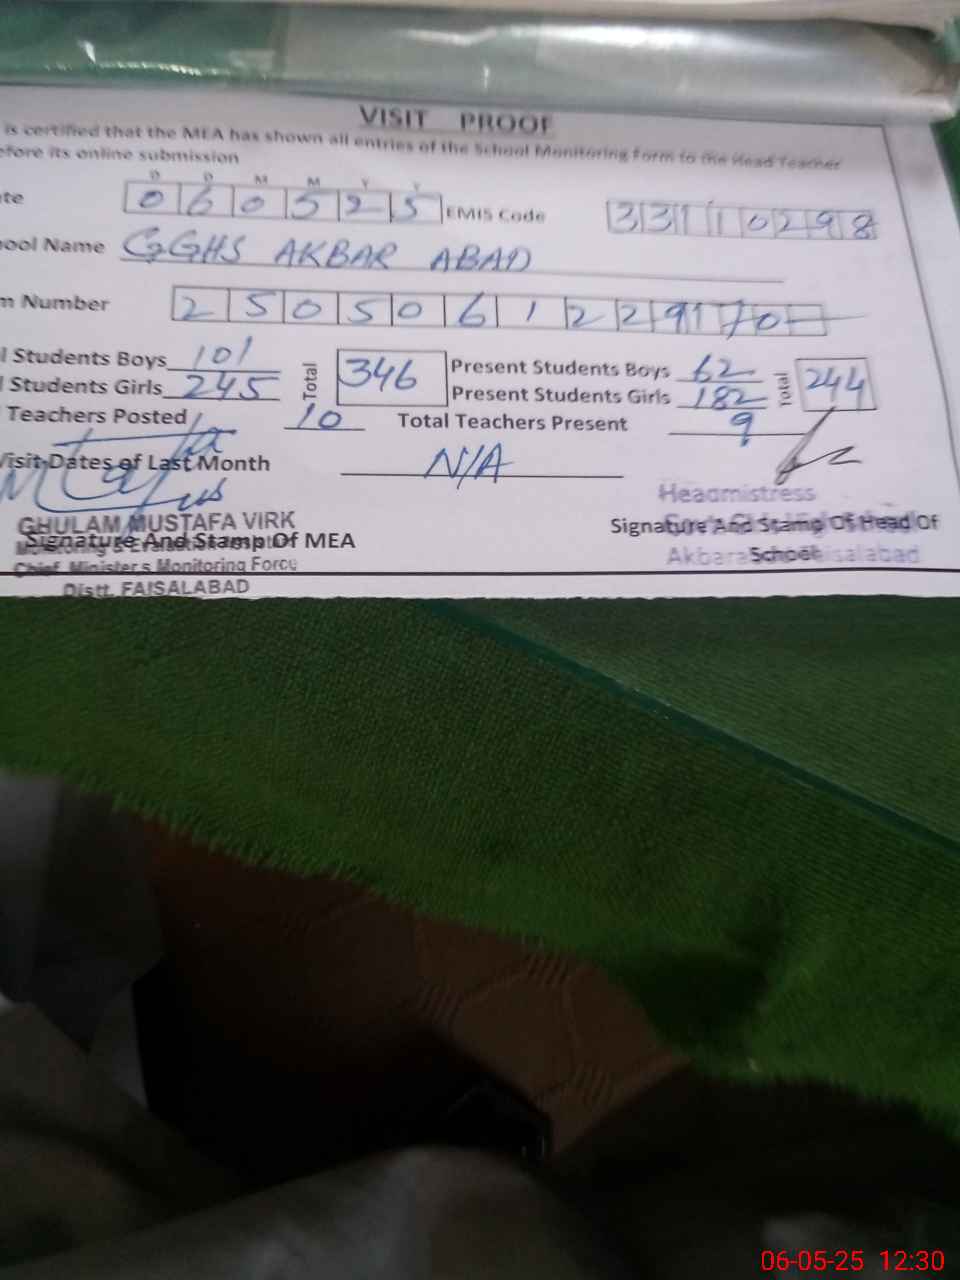 VISIT PROOF
is certified that the MEA has shown all entries of the School Monitoring Form to the Head Teacher
efore its online submission
D D M M Y Y
te 0 6 0 5 2 5 EMIS Code 3 3 1 1 0 2 9 8
ool Name GGHS AKBAR ABAD
m Number 2 5 0 5 0 6 1 2 2 9 1 7 0
l Students Boys 101 Total 346 Present Students Boys 62 Total 244
l Students Girls 245 Present Students Girls 182
Teachers Posted 10 Total Teachers Present 9
Visit Dates of Last Month N/A
Headmistress
GHULAM MUSTAFA VIRK
Signature And Stamp Of MEA Signature And Stamp Of Head Of
School
Chief Minister's Monitoring Force
Distt. FAISALABAD
06-05-25 12:30